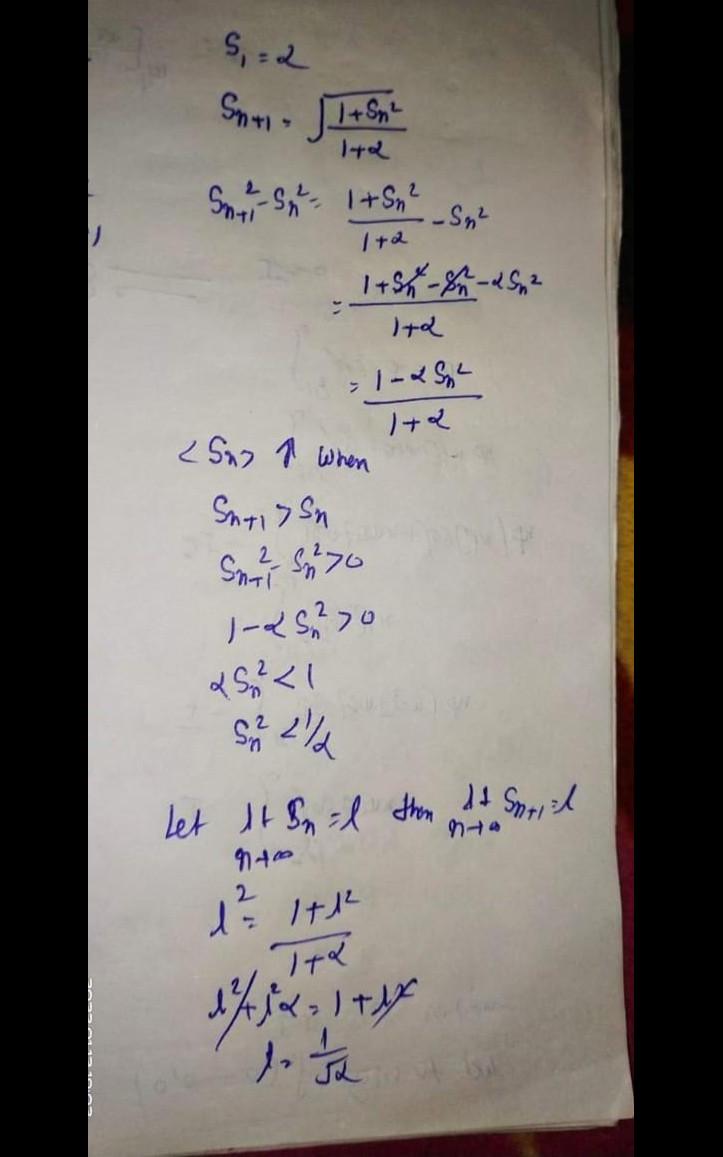 S₁ = α
Sₙ₊₁ = √((1+Sₙ²)/(1+α))
Sₙ₊₁² - Sₙ² = (1+Sₙ²)/(1+α) - Sₙ²
= (1+Sₙ² - Sₙ² - αSₙ²)/(1+α)
= (1-αSₙ²)/(1+α)
<Sₙ> ↑ when
Sₙ₊₁ > Sₙ
Sₙ₊₁² - Sₙ² > 0
1-αSₙ² > 0
αSₙ² < 1
Sₙ² < 1/α
Let lt n→∞ Sₙ = l then lt n→∞ Sₙ₊₁ = l
l² = (1+l²)/(1+α)
l² + l²α = 1 + l²
l = 1/√α